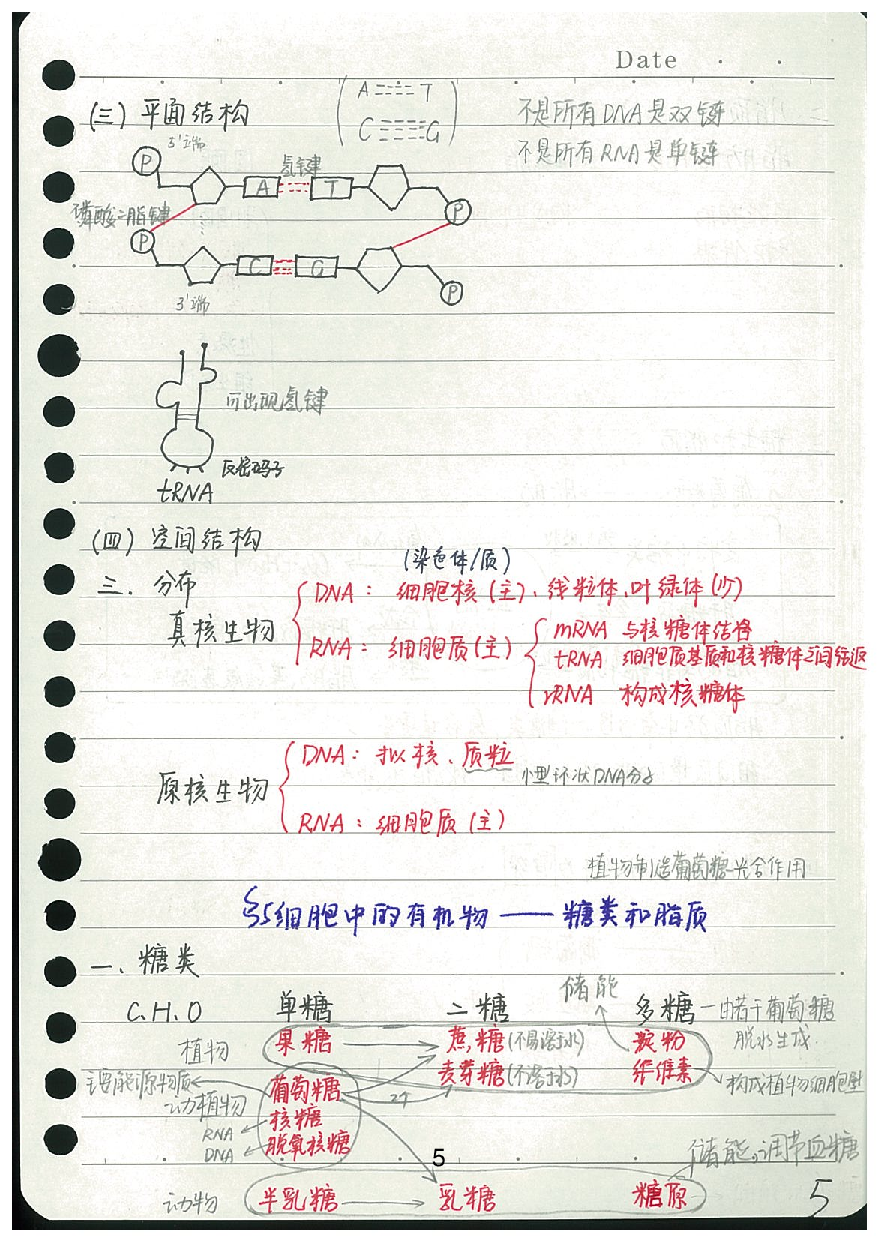 Date
(三) 平面结构
A T
C G
不是所有DNA是双链
不是所有RNA是单链
3'端
P
氢键
A T
P
磷酸二脂键
P
C G
P
3'端
可出现氢键
反密码子
tRNA
(四) 空间结构
(染色体/质)
三. 分布
真核生物
DNA: 细胞核(主)、线粒体、叶绿体(少)
RNA: 细胞质(主)
mRNA 与核糖体结合
tRNA 细胞质基质和核糖体之间往返
rRNA 构成核糖体
原核生物
DNA: 拟核、质粒
小型环状DNA分子
RNA: 细胞质(主)
植物制造葡萄糖-光合作用
§5细胞中的有机物——糖类和脂质
一、糖类
储能
C.H.O 单糖 二糖 多糖—由若干葡萄糖
脱水生成
植物 果糖 蔗糖(不易溶于水) 淀粉
麦芽糖(不溶于水) 纤维素
构成植物细胞壁
主要能源物质 葡萄糖 2个
动植物
RNA 核糖
DNA 脱氧核糖
5
储能,调节血糖
动物 半乳糖 乳糖 糖原
5